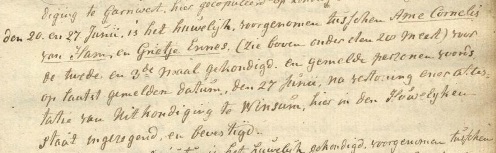 diging te Garnwert, hier gecopuleert op
den 20. en 27 Junii. is het huwelijk, voorgenomen tusschen Ame Cornelis
van Ham, en Grietje Ennes. (zie boven onder den 20 Meat) voor
de twede en 3de maal gekondigd. en gemelde personen voords
op laatst gemelden datum, den 27 Junii, na vertooning ener attes-
tatie van Uithondiging te Winsum, hier in den Houwelyken
staat ingezegend, en bevestigd.
is het huwelijk gekondigd, voorgenomen tusschen